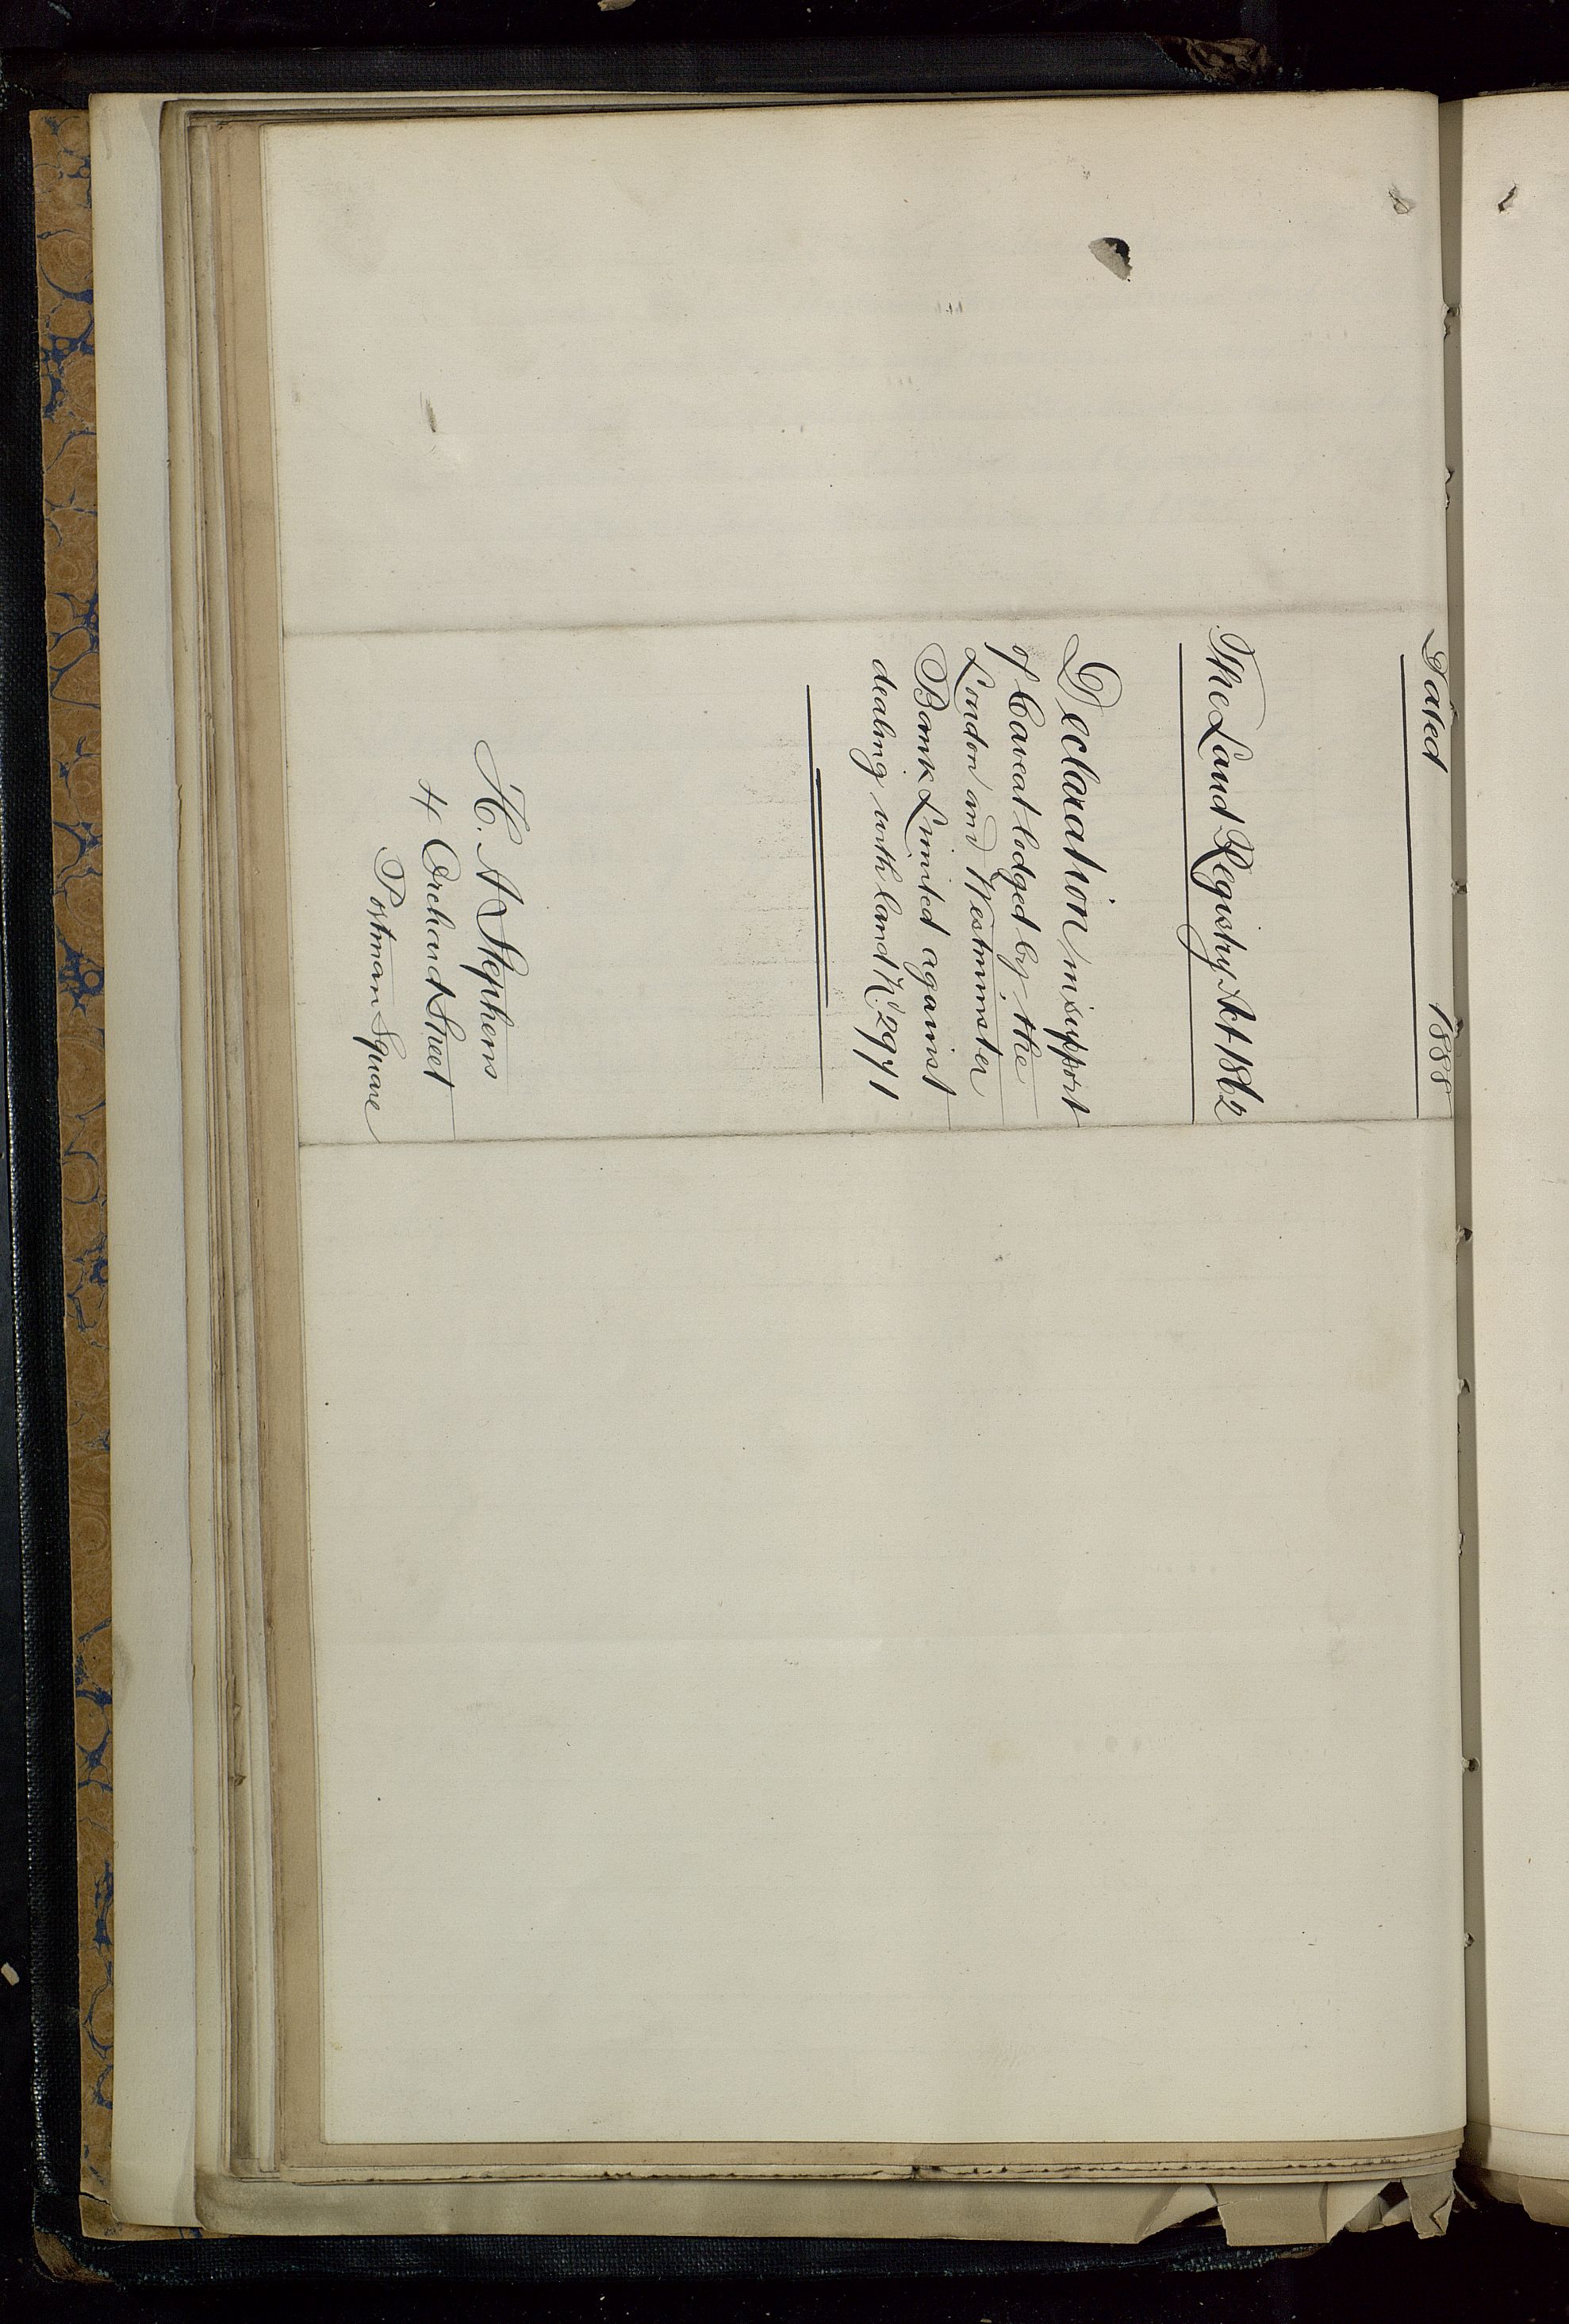 Dated 1888
The Land Registry Act 1862
Declaration in support
of Caveat lodged by the
London and Westminster
Bank Limited against
dealing with land No. 2971
H. A Stephens
4 Orchard Street
Portman Square